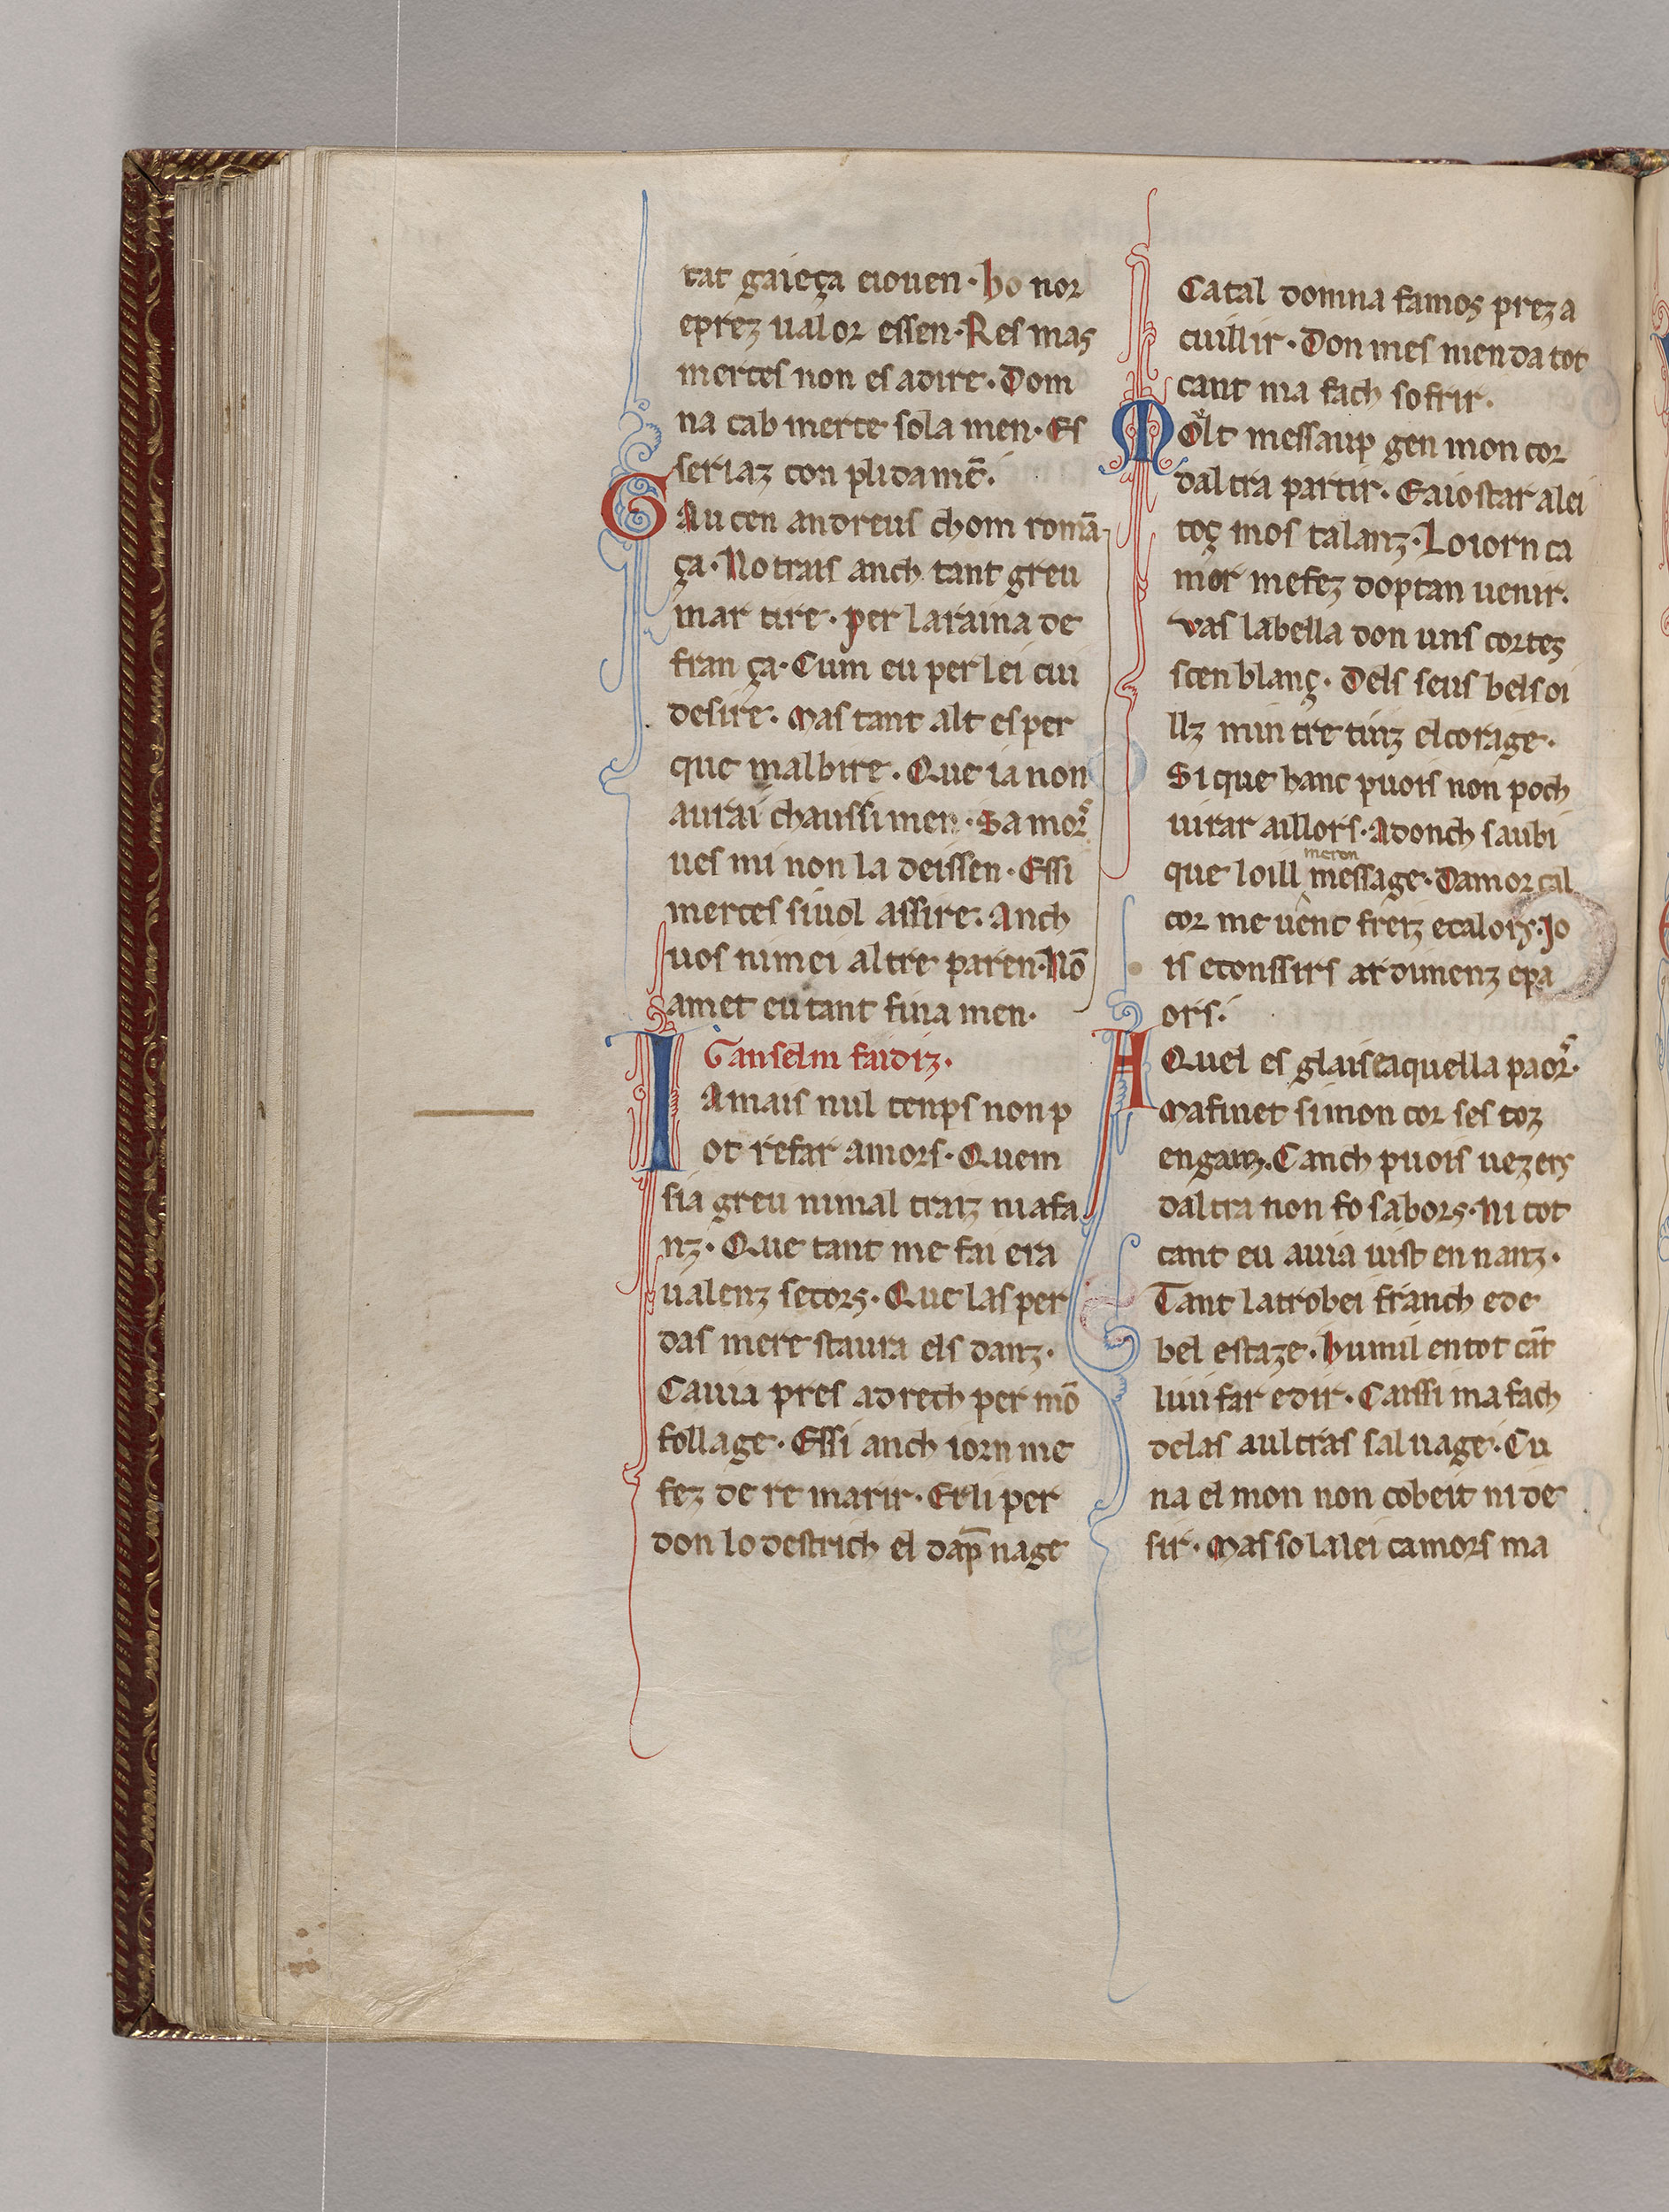 tat gaieça eiouen · ho nor
eprez ualor essen · Res mas
merces non es adire · Dom
na cab merce sola men · Es
seriaz con plidamē̄t.
GAu cen andreus chom romā
ça · No trais anch tant greu
mar tire · per laraina de
fran ça · Cum eu per lei cui
desire · Mas tant alt es per
que malbire · Que ia non
aurai chaussimen · Samor
ues mi non la deissen · Essi
merces siuol assire · Anch
uos nimei altre paren · Nō
amet eu tant fina men ·
Ganselm faidiz ·
IAmais nul tenps non p
ot refar amors · Quem
sia greu nimal traiz niafa
nz · Que tant me fai era
ualenz secors · Que las per
das mere staura els danz ·
Cauia pres adrech per mō
follage · Essi anch iorn me
fez de re marir · Er li per
don lo destrich el dap̄nage
Catal domna famos prez a
cuillir · Don mes menda tot
cant ma fach sofrir ·
MOlt messaup gen mon cor
daltra partir · Eaiostar alei
toç mos talanz · Loiorn ca
mor mefez doptan uenir ·
vas labella don uns cortes
scenblanç · Dels seus bels oi
llz min tre tinz elcorage ·
Si que hanc puois non poch
uirar aillors · Adonch saubi
que loill meron message · Damor cal
cor me uenc freiz ecalors · Jo
is econssirs ardimenz epa
ors ·
AQuel es glaiseaquella paor ·
Mafinet simon cor ses toz
enganz · Canch puois uezers
daltra non fo sabors · Ni tot
cant eu auia uist ennanz ·
Tant latrobei franch ede
bel estaze · humil entot cāt
liui far edir · Caissi ma fach
delas aultras saluage · Cu
na el mon non cobeit ni de
sir · Mas so lalei camors ma